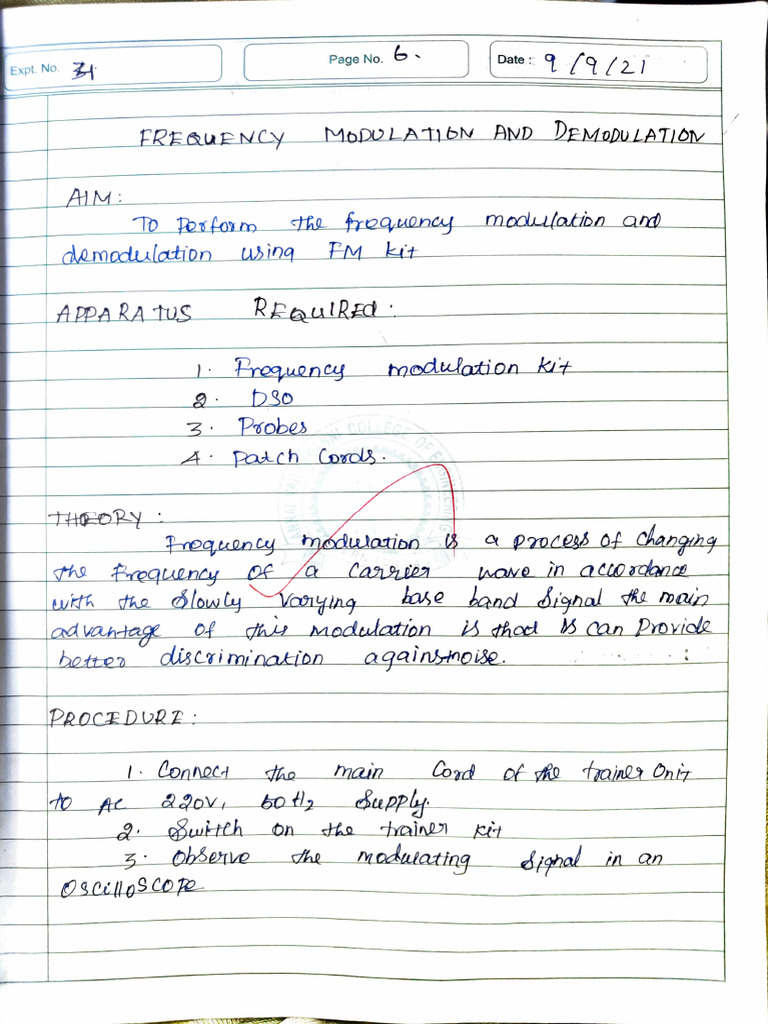 Expt. No. 31
Page No. 6.
Date : 9/9/21
FREQUENCY MODULATION AND DEMODULATION
AIM:
To perform the frequency modulation and
demodulation using FM kit
APPARATUS REQUIRED:
1. Frequency modulation kit
2. DSO
3. Probes
4. Patch Cords.
COLLEGE OF ENGINEERING
THEORY:
Frequency modulation is a process of changing
the frequency of a carrier wave in accordance
with the slowly varying base band signal the main
advantage of this modulation is thad is can provide
better discrimination againstnoise.
PROCEDURE:
1. Connect the main cord of the trainer Unit
to AC 220V, 50Hz supply.
2. Switch on the trainer kit
3. Observe the modulating signal in an
oscilloscope